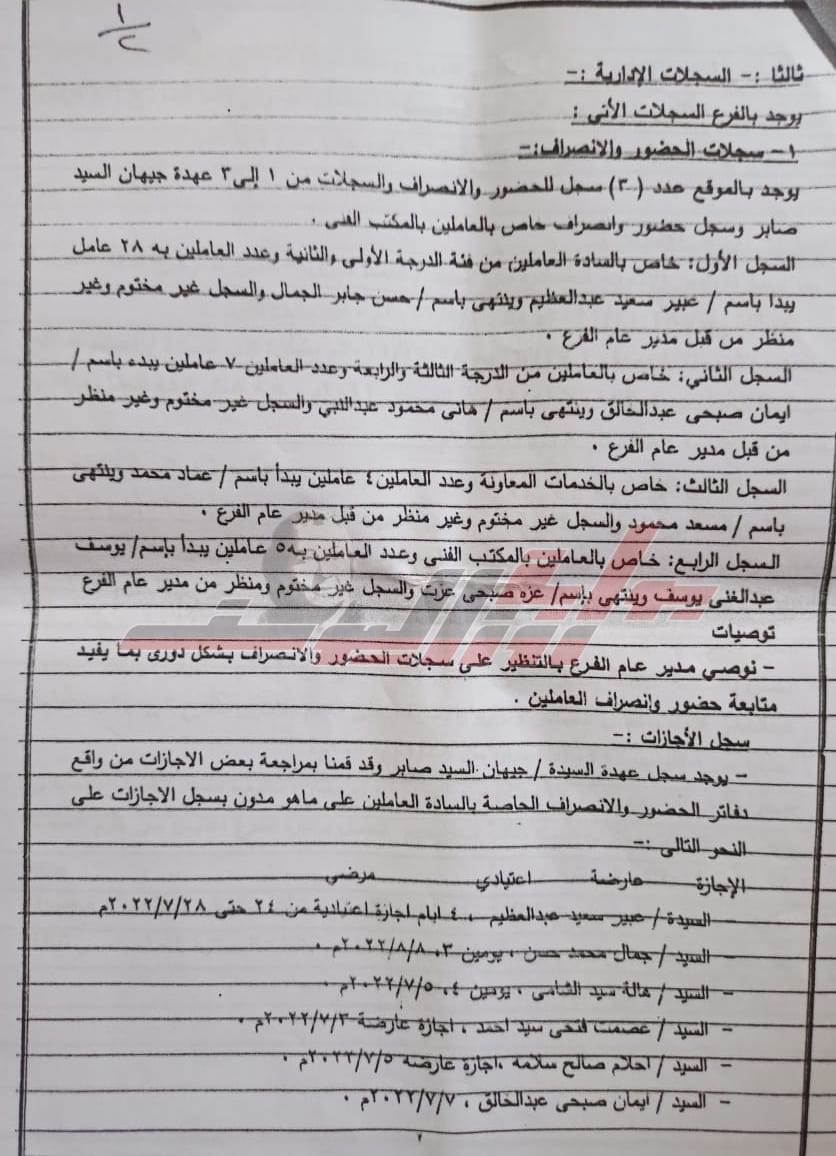 ١/٢
ثالثا :- السجلات الإدارية :-
يوجد بالفرع السجلات الأتى :
١- سجلات الحضور والانصراف:-
يوجد بالموقع عدد (٣) سجل للحضور والانصراف والسجلات من ١ إلى ٣ عهدة جيهان السيد
صابر وسجل حضور وانصراف خاص بالعاملين بالمكتب الفنى .
السجل الأول: خاص بالسادة العاملين من فئة الدرجة الأولى والثانية وعدد العاملين به ٢٨ عامل
يبدا باسم / عبير سعيد عبدالعظيم وينتهى باسم / حسن جابر الجمال والسجل غير مختوم وغير
منظر من قبل مدير عام الفرع .
السجل الثاني: خاص بالعاملين من الدرجة الثالثة والرابعة وعدد العاملين ٧ عاملين يبدء باسم /
ايمان صبحى عبدالخالق وينتهى باسم / هانى محمود عبدالنبي والسجل غير مختوم وغير منظر
من قبل مدير عام الفرع .
السجل الثالث: خاص بالخدمات المعاونة وعدد العاملين ٤ عاملين يبدأ باسم / عماد محمد وينتهى
باسم / مسعد محمود والسجل غير مختوم وغير منظر من قبل مدير عام الفرع .
السجل الرابع: خاص بالعاملين بالمكتب الفنى وعدد العاملين به ٥ عاملين يبدأ بإسم/ يوسف
عبدالغنى يوسف وينتهى بإسم/ عزه صبحى عزت والسجل غير مختوم ومنظر من مدير عام الفرع
توصيات
- نوصي مدير عام الفرع بالتنظير على سجلات الحضور والانصراف بشكل دورى بما يفيد
متابعة حضور وانصراف العاملين .
سجل الأجازات :-
- يوجد سجل عهدة السيدة / جيهان السيد صابر وقد قمنا بمراجعة بعض الاجازات من واقع
دفاتر الحضور والانصراف الخاصة بالسادة العاملين على ماهو مدون بسجل الاجازات على
النحو التالى :-
الإجازة عارضة اعتيادي مرضى
- السيدة / عبير سعيد عبدالعظيم ، ٤ ايام اجازة اعتيادية من ٢٤ حتى ٢٠٢٢/٧/٢٨م
- السيد / جمال محمد حسن ، يومين ٣، ٢٠٢٢/٨/٨م .
- السيد / هالة سيد الشامى ، يومين ٤، ٢٠٢٢/٧/٥م .
- السيد / عصمت فتحى سيد احمد ، اجازة عارضة ٢٠٢٢/٧/٣م .
- السيد / احلام صالح سلامه ،اجازة عارضه ٢٠٢٢/٧/٥م .
- السيد / ايمان صبحى عبدالخالق ، ٢٠٢٢/٧/٧م .
٢